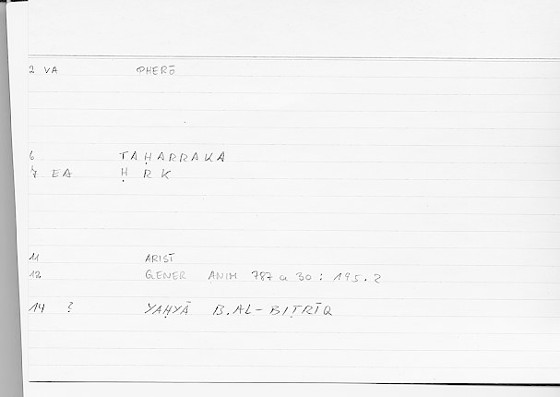 2 VA PHERŌ
6 TAḤARRAKA
7 EA Ḥ R K
11 ARIST
12 GENER ANIM 787 a 30 : 195.2
14 ? YAḤYĀ B.AL-BIṬRĪQ